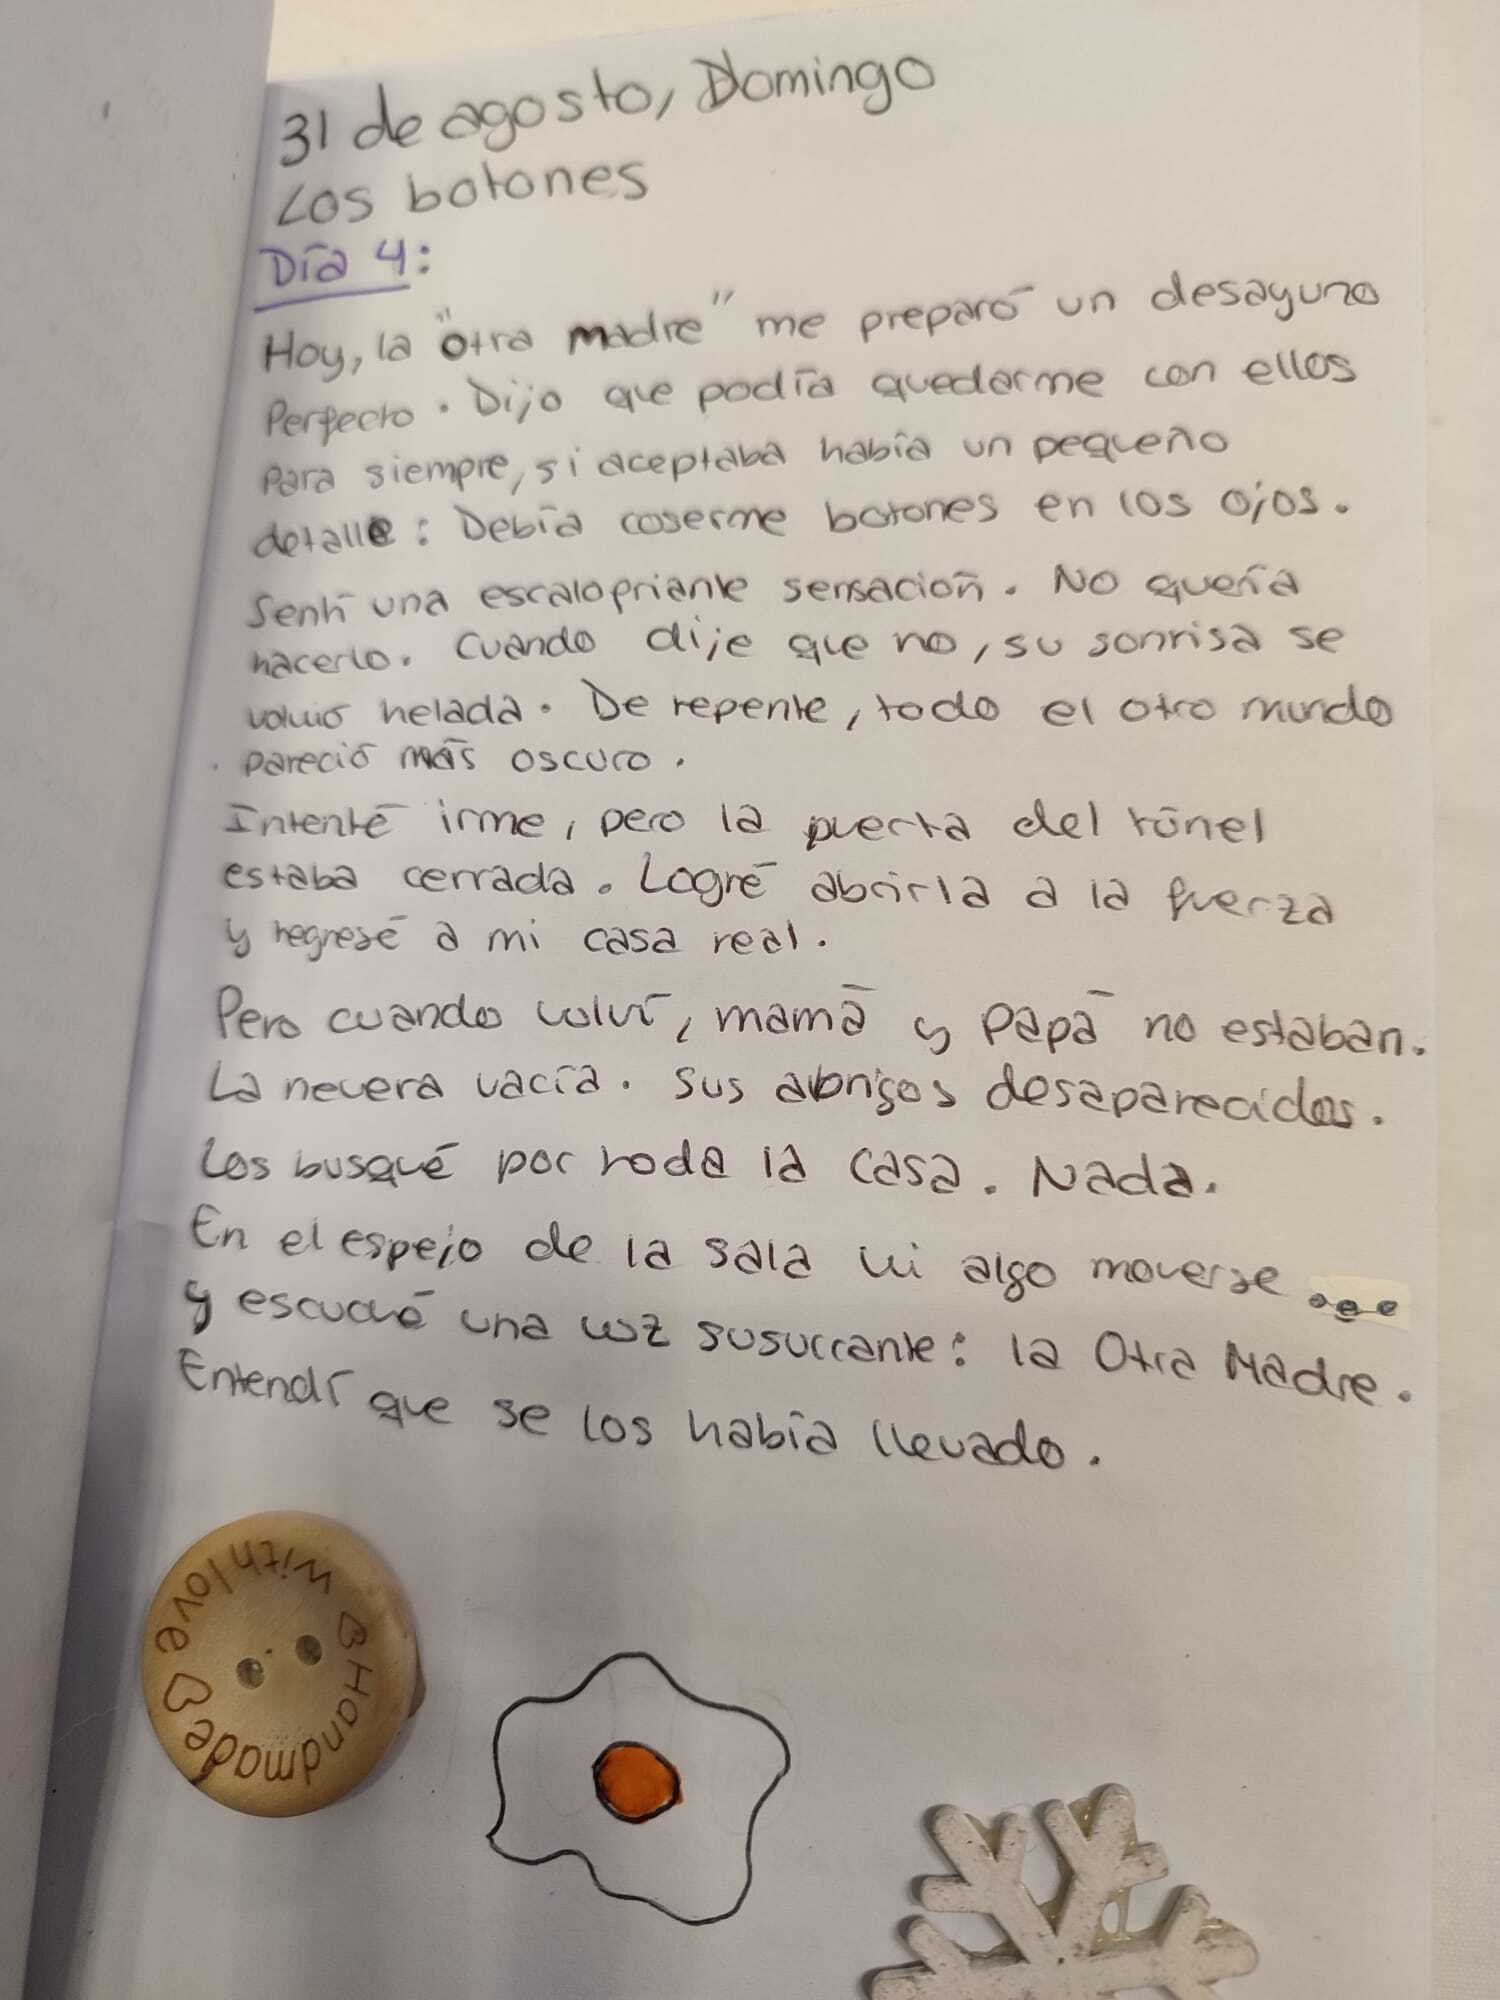 31 de agosto, Domingo
Los botones
Día 4:
Hoy, la "otra madre" me preparó un desayuno
Perfecto. Dijo que podía quedarme con ellos
para siempre, si aceptaba había un pequeño
detalle: Debía coserme botones en los ojos.
Sentí una escalopriante sensación. No quería
hacerlo. Cuando dije que no, su sonrisa se
volvió helada. De repente, todo el otro mundo
pareció más oscuro.
Intenté irme, pero la puerta del túnel
estaba cerrada. Logré abrirla a la fuerza
y regresé a mi casa real.
Pero cuando volví, mamá y Papá no estaban.
La nevera vacía. Sus abrigos desaparecidos.
Los busqué por toda la casa. Nada.
En el espejo de la sala vi algo moverse...
y escuché una voz susurrante: la Otra Madre.
Entendí que se los había llevado.
♡ Handmade ♡ with love